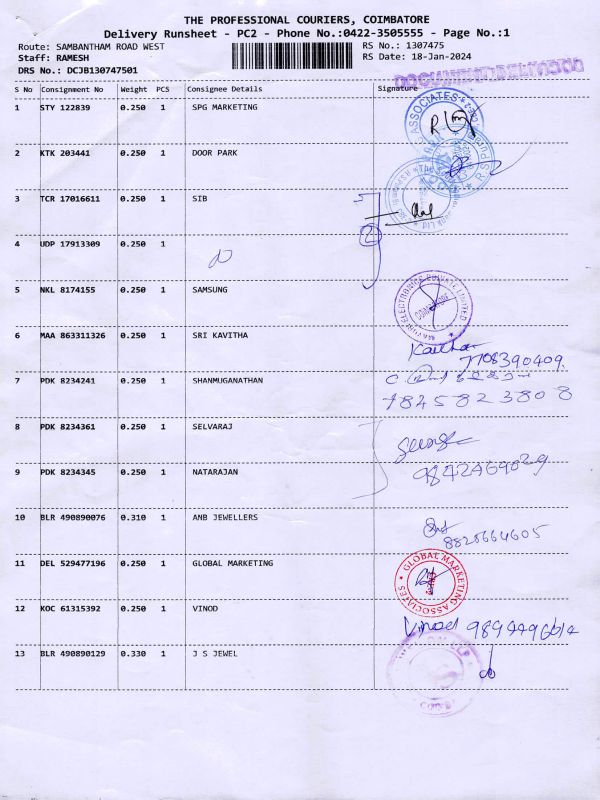 THE PROFESSIONAL COURIERS, COIMBATORE
Delivery Runsheet - PC2 - Phone No.:0422-3505555 - Page No.:1
Route: SAMBANTHAM ROAD WEST RS No.: 1307475
Staff: RAMESH RS Date: 18-Jan-2024
DRS No.: DCJB130747501
S No Consignment No Weight PCS Consignee Details Signature
1 STY 122839 0.250 1 SPG MARKETING
ASSOCIATES
2 KTK 203441 0.250 1 DOOR PARK
3 TCR 17016611 0.250 1 SIB
2
4 UDP 17913309 0.250 1
5 NKL 8174155 0.250 1 SAMSUNG
ELECTRONICS PRIVATE LIMITED
6 MAA 863311326 0.250 1 SRI KAVITHA
7708390409.
7 PDK 8234241 0.250 1 SHANMUGANATHAN
7845823808
8 PDK 8234361 0.250 1 SELVARAJ
9 PDK 8234345 0.250 1 NATARAJAN
9842469029
10 BLR 490890076 0.310 1 ANB JEWELLERS
8828664605
11 DEL 529477196 0.250 1 GLOBAL MARKETING
GLOBAL MARKETING ASSOCIATES
12 KOC 61315392 0.250 1 VINOD
Vinod
13 BLR 490890129 0.330 1 J S JEWEL